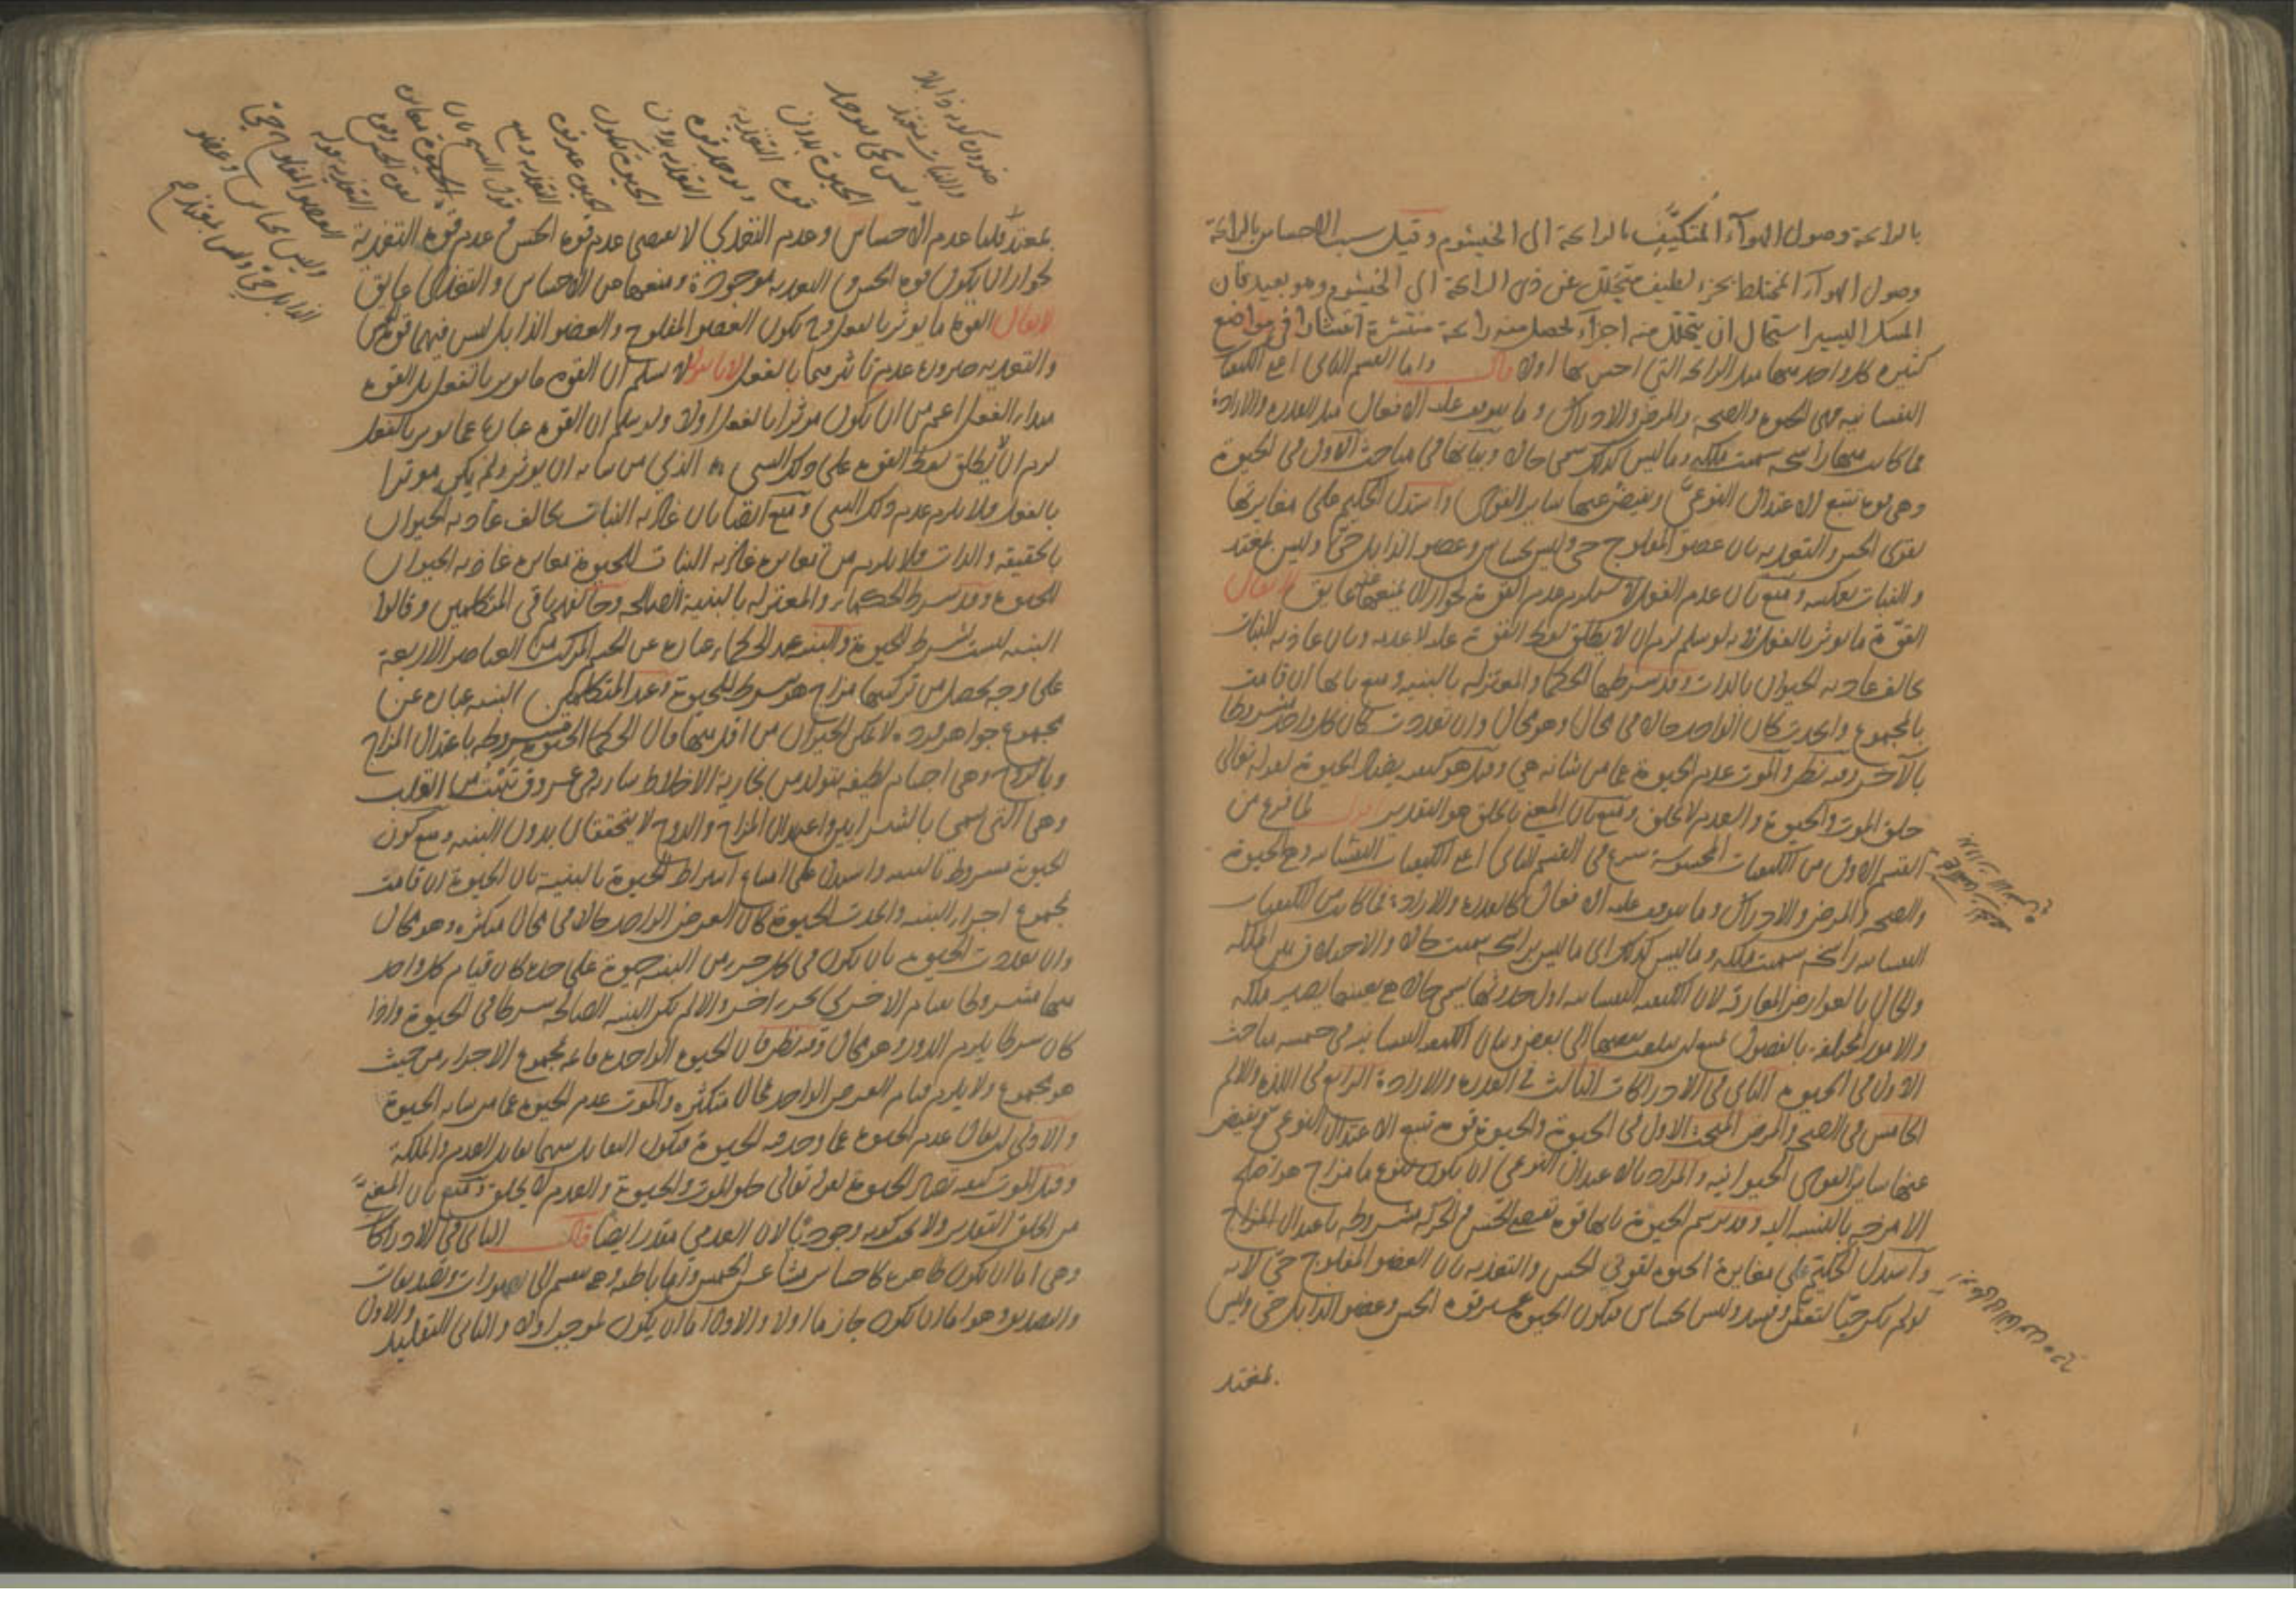 بالرائحة وصول الهوآء المتكيّف بالرائحة الى الخيشوم وقيل سبب الاحساس بالرائحة
وصول الهوآء المختلط بجزء لطيف متحلل عن ذى الرائحة الى الخيشوم وهو بعيد فان
المسك اليسير استحال ان يتحلل منه اجزآء يحصل منه رائحة منتشرة انتشارا فى مواضع
كثيره كل واحد منها مثل الرائحه التي احس بها اولا قال واما القسم الثانى اعنى الكيفيات
النفسانيه فهى الحيوة والصحه والمرض والادراك وما يتوقف عليه الافعال مثل القدره والارادة
فما كانت منها راسخه سميت ملكه وما ليس كذلك سمى حالا وبيانها فى مباحث الاول فى الحيوة
وهى قوة تتبع الاعتدال النوعىّ ويفيض عنها ساير القوى واستدل الحكيم على مغايرتها
لقوى الحس والتغذيه بان عضو المفلوج حى وليس بحساس وعضو الذابل حىّ وليس بمغتذ
والنبات بعكسه ومنع بان عدم الفعل لا يستلزم عدم القوة لجواز ان يمنعها عنه عايق لا يقال
القوّة ما يوثر بالفعل لانه لو سلم لزم ان لا يطلق لفظ القوة عليه لا عدمه وبان غاذيه النبات
يخالف غاذيه الحيوان بالذات وقد شرطها الحكما والمعتزله بالبنيه ومنع بانها ان قامت
بالمجموع واتحدت كان الواحد حالا فى محال وهو محال وان تعددت كان كل واحد مشروطا
بالآخر وفيه نظر والموت عدم الحيوة عما من شانه هى وقيل هو كيفيه يضاد الحيوة لقوله تعالى
خلق الموت والحيوة والعدم لا يخلق ومنع بان المعنى بالخلق هو التقدير اقول لما فرغ من
القسم الاول من الكيفيات المحسوسة شرع فى القسم الثانى اعنى الكيفيات النفسانيه وهى الحيوة
والصحه والمرض والادراك وما يتوقف عليه الافعال كالقدره والارادة فما كانت من الكيفيات
النفسانيه راسخه سميت ملكه وما ليس كذلك اى ما ليس براسخه سميت حالا والاختلاف بين الملكه
والحال بالعوارض المفارقة لان الكيفيه النفسانيه اول حدوثها يسمى حالا ثم بعينها يصير ملكه
والامور المختلفه بالفصول يمتنع ان ينقلب بعضها الى بعض وبيان الكيفيه النفسانيه فى خمسه مباحث
الاول فى الحيوه الثانى فى الادراكات الثالث فى القدره والارادة الرابع فى اللذه والالم
الخامس فى الصحه والمرض المبحث الاول فى الحيوة والحيوة قوة تتبع الاعتدال النوعى ويفيض
عنها ساير القوى الحيوانيه والمراد بالاعتدال النوعى ان يكون لنوع ما مزاج هو اصلح
الامزجه بالنسبه اليه وقد يرسم الحيوة بانها قوة تقتضى الحس والحركه مشروطه باعتدال المزاج
واستدل الحكيم على مغايرة الحيوه لقوتى الحس والتغذيه بان العضو المفلوج حىّ لانه
لو لم يكن حيّا لتعفّن وفسد وليس بحساس فيكون الحيوة غير قوة الحس وعضو الذابل حى وليس
بمغتذ
بمغتذ قلنا عدم الاحساس وعدم التغذي لا يقتضى عدم قوة الحس وعدم قوة التغذية
لجواز ان يكون قوة الحس والتغذيه موجودة ويمنعها من الاحساس والتغذى عايق
لا يقال القوة ما يوثر بالفعل وح يكون العضو المفلوج والعضو الذابل ليس فيهما قوة الحس
والتغذيه ضرورة عدم تاثيرهما بالفعل لانا نقول لا نسلم ان القوة ما يوثر بالفعل بل القوة
مبدا الفعل اعم من ان يكون موثرا بالفعل او لا ولو سلم ان القوة عبارة عما يوثر بالفعل
لزم ان لا يطلق لفظ القوة على ذلك الشى الذي من شانه ان يوثر ولم يكن موثرا
بالفعل ولا يلزم عدم ذلك الشى ومنع ايضا بان غاذيه النبات يخالف غاذيه الحيوان
بالحقيقه والذات فلا يلزم من مغايرة غاذيه النبات للحيوة مغايرة غاذيه الحيوان
للحيوة وقد شرط الحكماء والمعتزله بالبنية الصالحه وخالفهم باقى المتكلمين وقالوا
البنيه ليست بشرط للحيوة والبنيه عند الحكماء عبارة عن الجسم المركب من العناصر الاربعة
على وجه يحصل من تركيبها مزاج هو شرط للحيوة وعند المتكلمين البنيه عبارة عن
مجموع جواهر فرده لا يمكن الحيوان من اقل منها قال الحكما الحيوة مشروطه باعتدال المزاج
وبالروح وهى اجسام لطيفه يتولد من بخارية الاخلاط سارية فى عروق تنبت من القلب
وهى التى تسمى بالشرايين واعتدال المزاج والروح لا يتحققان بدون البنيه ومنع كون
الحيوة مشروطه بالبنيه واستدل على امتناع اشتراط الحيوة بالبنية بان الحيوة ان قامت
بمجموع اجزاء البنيه واتحدت الحيوة كان العرض الواحد حالا فى محال متكثره وهو محال
وان تعددت الحيوة بان يكون فى كل جزء من البنيه حيوة على حده كان قيام كل واحد
منها مشروطا بقيام الاخرى بجزء اخر والا لم تكن البنيه الصالحه شرطا فى الحيوة واذا
كان شرطا يلزم الدور وهو محال وفيه نظر فان الحيوة الواحده قايمه بمجموع الاجزاء من حيث
هو مجموع ولا يلزم قيام العرض الواحد بمحال متكثره والموت عدم الحيوة عما من شانه الحيوة
والاولى ان يقال عدم الحيوة عما وجد فيه الحيوة فيكون التقابل بينهما تقابل العدم والملكة
وقيل الموت كيفيه تضاد الحيوة لقوله تعالى خلق الموت والحيوة والعدم لا يخلق ومنع بان المعنىّ
من الخلق التقدير ولا يجب كونه وجوديّا لان العدمى مقدر ايضا قال الثانى فى الادراكات
وهى اما ان يكون ظاهرة كاحساس المشاعر الخمس واما باطنه وهى تنقسم الى تصورات وتصديقات
والتصديق هو اما ان يكون جازما او لا والاول اما ان يكون لموجب او لا والثانى التقليد
والاول